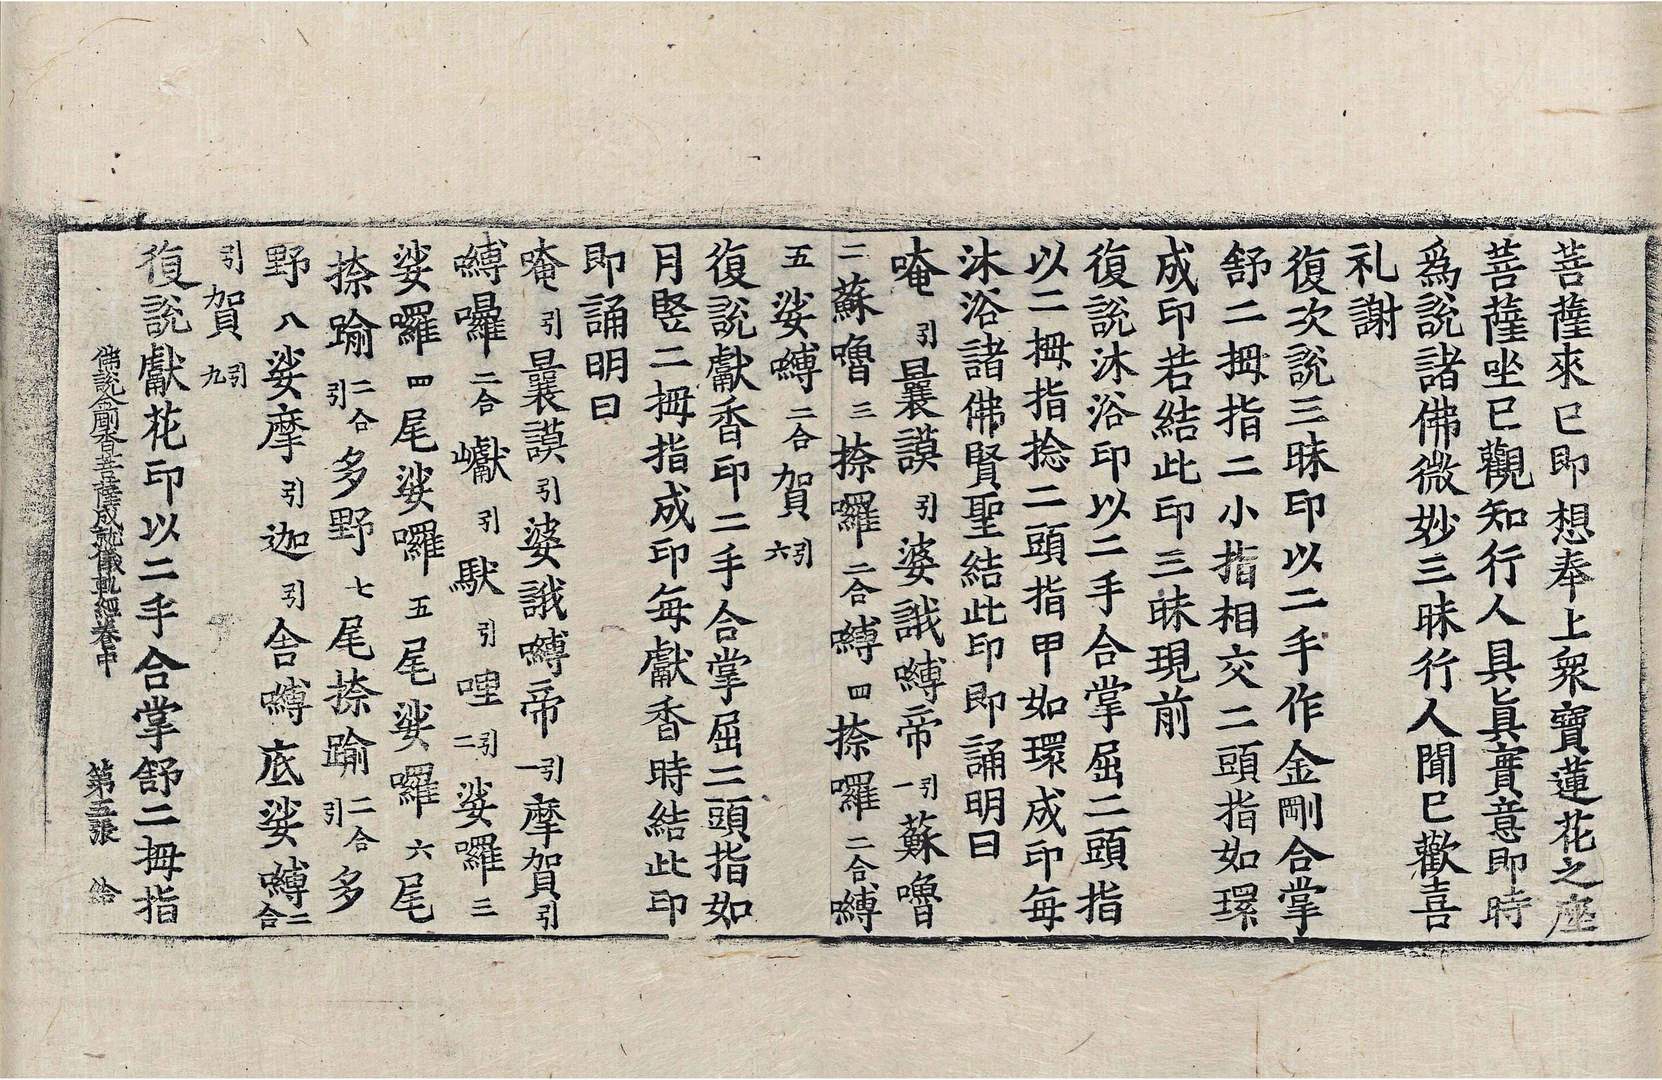 菩薩來已即想奉上衆寶蓮花之座
菩薩坐已觀知行人具眞實意即時
爲說諸佛微妙三昧行人聞已歡喜
礼謝
復次說三昧印以二手作金剛合掌
舒二拇指二小指相交二頭指如環
成印若結此印三昧現前
復說沐浴印以二手合掌屈二頭指
以二拇指捻二頭指甲如環成印每
沐浴諸佛賢聖結此印即誦明曰
唵引曩謨引婆誐嚩帝引一蘇嚕
二蘇嚕三捺囉二合嚩四捺囉二合嚩
五娑嚩二合賀引六
復說獻香印二手合掌屈二頭指如
月竪二拇指成印每獻香時結此印
即誦明曰
唵引曩謨引婆誐嚩帝引一摩賀引
嚩曩二合巘引馱引哩引二娑囉三
娑囉四尾娑囉五尾娑囉六尾
捺踰二合引多野七尾捺踰二合引多
野八娑摩引迦引舍嚩底娑嚩二合
引賀引九
復說獻花印以二手合掌舒二拇指
佛說金剛香菩薩成就儀軌經卷中 第五張